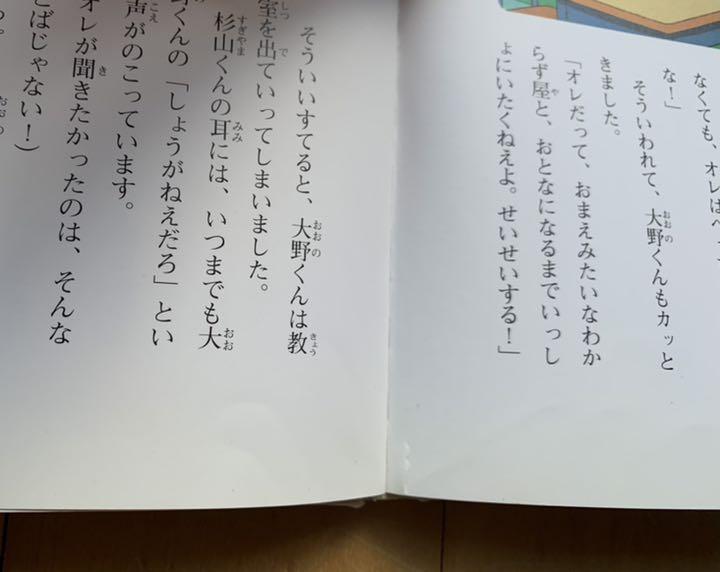 なくても、オレはベ
な!」
そういわれて、大野くんもカッと
きました。
「オレだって、おまえみたいなわか
らず屋と、おとなになるまでいっし
ょにいたくねえよ。せいせいする!」
そういいすてると、大野くんは教
室を出ていってしまいました。
杉山くんの耳には、いつまでも大
野くんの「しょうがねえだろ」とい
声がのこっています。
オレが聞きたかったのは、そんな
とばじゃない!)